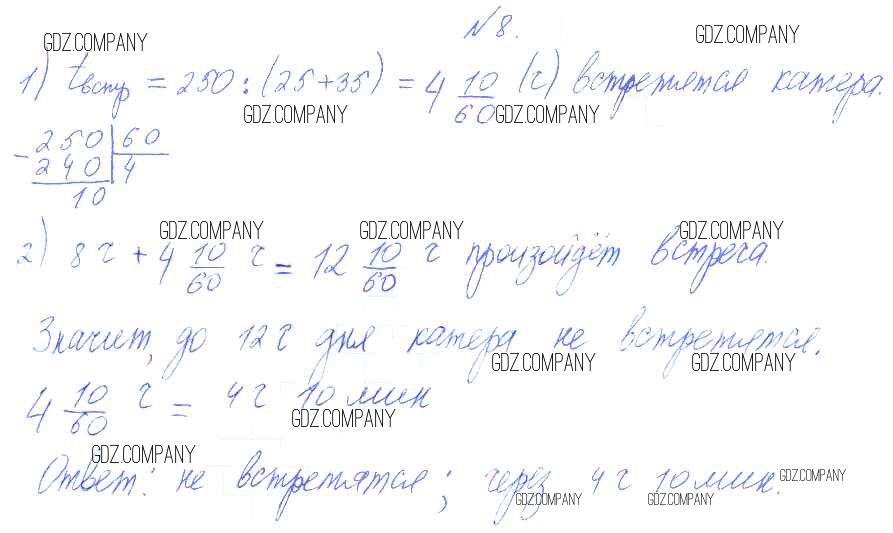 №8.
GDZ.COMPANY GDZ.COMPANY
1) tвстр = 250 : (25+35) = 4 10/60 (ч) встретятся катера.
GDZ.COMPANY GDZ.COMPANY
- 250 | 60
240 | 4
10
GDZ.COMPANY GDZ.COMPANY GDZ.COMPANY
2) 8 ч + 4 10/60 ч = 12 10/60 ч произойдёт встреча.
Значит, до 12 ч дня катера не встретятся.
GDZ.COMPANY GDZ.COMPANY
4 10/60 ч = 4 ч 10 мин
GDZ.COMPANY
GDZ.COMPANY
Ответ: не встретятся; через 4 ч 10 мин.
GDZ.COMPANY
GDZ.COMPANY GDZ.COMPANY